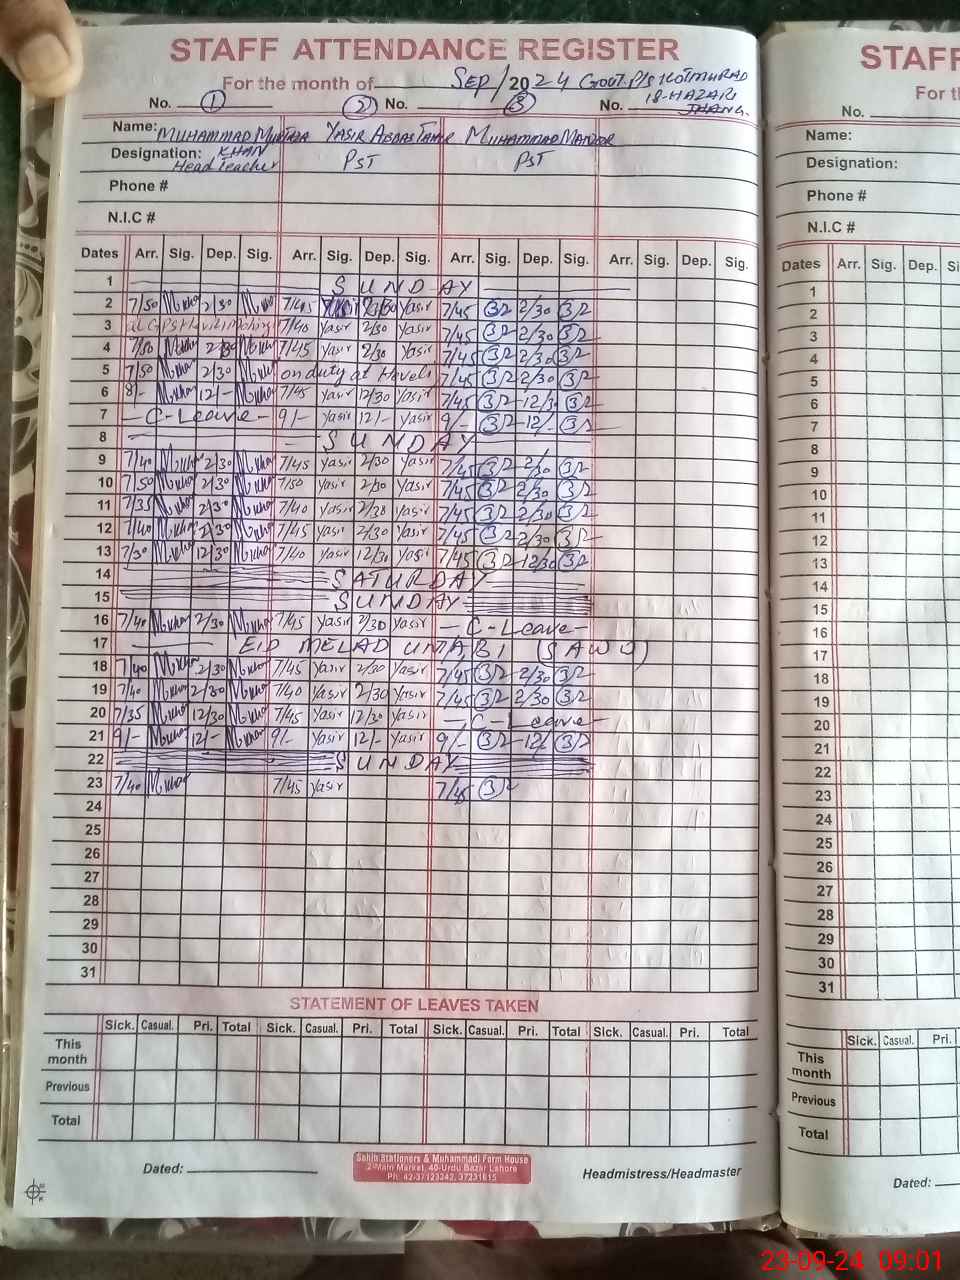 STAFF ATTENDANCE REGISTER
For the month of Sep/2024 GOVT. P/S KOTMURAD
18-HAZARI
JHANG.
No. 1 2 No. 3 No.
Name: MUHAMMAD KHAN YASIR ABBAS MUHAMMAD
Designation: Head Teacher PST PST
Phone #
N.I.C #
Dates Arr. Sig. Dep. Sig. Arr. Sig. Dep. Sig. Arr. Sig. Dep. Sig. Arr. Sig. Dep. Sig.
1 SUNDAY
2 7/50 M.Khan 2/30 M.Khan 7/45 Yasir 2/30 Yasir 7/45 2/30
3 7/40 Yasir 2/30 Yasir 7/45 2/30
4 7/50 M.Khan 2/30 M.Khan 7/45 Yasir 2/30 Yasir 7/45 2/30
5 7/50 M.Khan 2/30 M.Khan on duty at Haveli 7/45 2/30
6 8/- M.Khan 12/- M.Khan 7/45 Yasir 12/30 Yasir 7/45 12/3
7 - C-Leave - 9/- Yasir 12/- Yasir 9/- 12/-
8 SUNDAY
9 7/40 M.Khan 2/30 M.Khan 7/45 Yasir 2/30 Yasir 7/45 2/30
10 7/50 M.Khan 2/30 M.Khan 7/50 Yasir 2/30 Yasir 7/45 2/30
11 7/35 M.Khan 2/30 M.Khan 7/40 Yasir 2/30 Yasir 7/45 2/30
12 7/40 M.Khan 2/30 M.Khan 7/45 Yasir 2/30 Yasir 7/45 2/30
13 7/30 M.Khan 12/30 M.Khan 7/40 Yasir 12/30 Yasir 7/45 12/30
14 SATURDAY
15 SUNDAY
16 7/40 M.Khan 2/30 M.Khan 7/45 Yasir 2/30 Yasir - C-Leave -
17 EID MELAD UNABI (SAWW)
18 7/40 M.Khan 2/30 M.Khan 7/45 Yasir 2/30 Yasir 7/45 2/30
19 7/40 M.Khan 2/30 M.Khan 7/40 Yasir 2/30 Yasir 7/45 2/30
20 7/35 M.Khan 12/30 M.Khan 7/45 Yasir 12/30 Yasir - C-Leave -
21 9/- M.Khan 12/- M.Khan 9/- Yasir 12/- Yasir 9/- 12/-
22 SUNDAY
23 7/40 M.Khan 7/45 Yasir 7/45
24
25
26
27
28
29
30
31
STATEMENT OF LEAVES TAKEN
Sick. Casual. Pri. Total Sick. Casual. Pri. Total Sick. Casual. Pri. Total Sick. Casual. Pri. Total
This month
Previous
Total
Dated: Headmistress/Headmaster
Sahib Stationers & Muhammadi Form House
2-Main Market, 40-Urdu Bazar Lahore
Ph. 42-37123242, 37231815
STAFF
For th
No.
Name:
Designation:
Phone #
N.I.C #
Dates Arr. Sig. Dep. Si
1
2
3
4
5
6
7
8
9
10
11
12
13
14
15
16
17
18
19
20
21
22
23
24
25
26
27
28
29
30
31
Sick. Casual. Pri.
This month
Previous
Total
Dated:
23-09-24 09:01